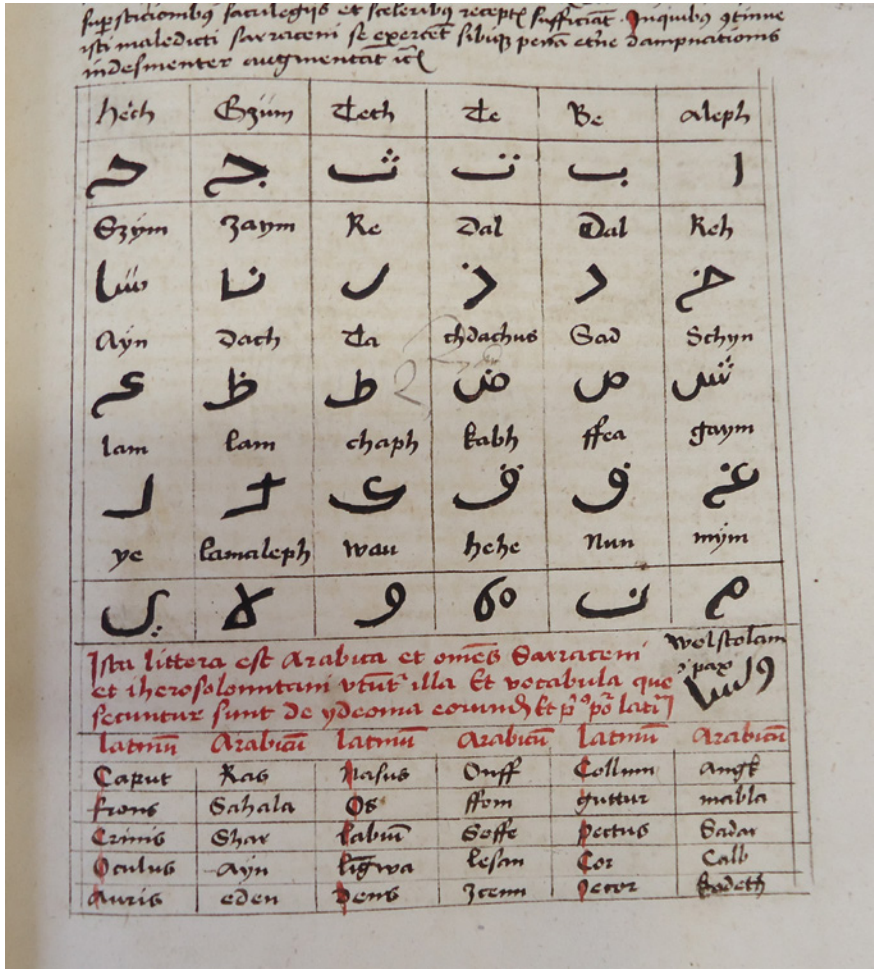 supsticionibꝯ sacrilegijs et sceleribꝯ recepte sufficiat. Inquibꝯ ꝯtinue
isti maledicti sarraceni se exercēt sibiqꝫ penā etne dampnationis
indesinenter augmentāt
hech Gzim Tech Te Be Aleph
ح ج ث ت ب ا
Szym zaym Re Dal Dal Reh
خ د ذ ر
Ayn Dach Ta chdachus Sad Schyn
ع ظ ط ض ص ش
lam lam chaph kabh ffea gaym
ف غ
ye lamaleph wau hehe Nun mym
ي لا و ه ن م
Ista littera est Arabica et omēs Sarraceni
et iherosolomitani vtūt illa Et vocabula que
secuntur sunt de ydeoma eorund Et
welstolam
pax
latinū Arabicū latinū Arabicū latinū Arabicū
Caput Ras Nasus Onff Collum Angk
frons Sahala Os ffom guttur mabla
Crinis Shar labiū Soffe Pectus Sadar
Oculus Ayn ligwa lesan Cor Calb
Auris eden Dens zcenn Jecor kadeth